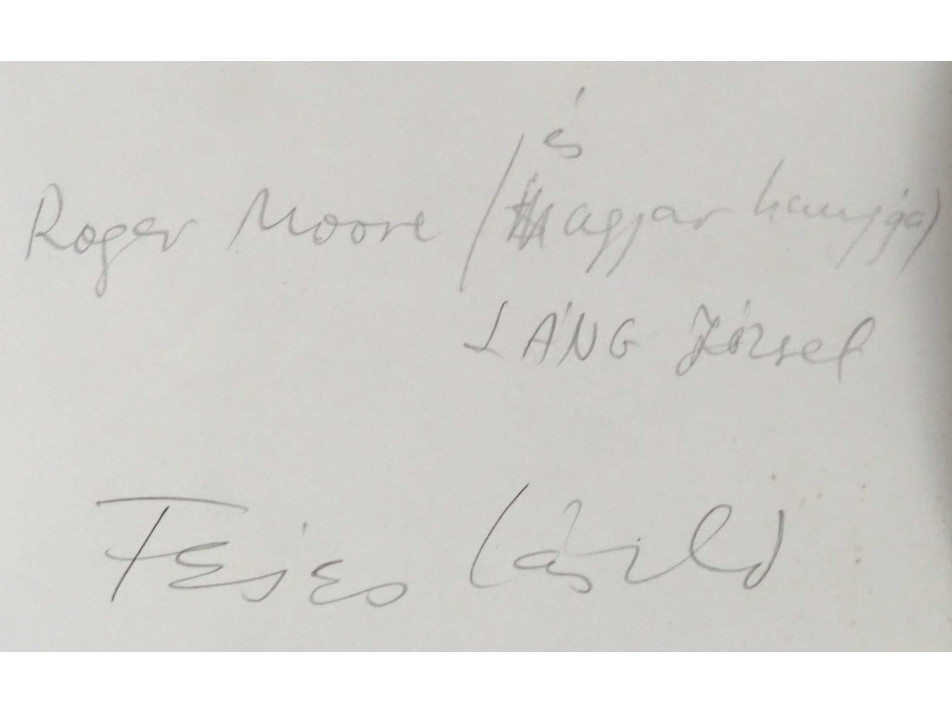 és
Roger Moore (magyar hangja)
LÁNG József
Fejes László